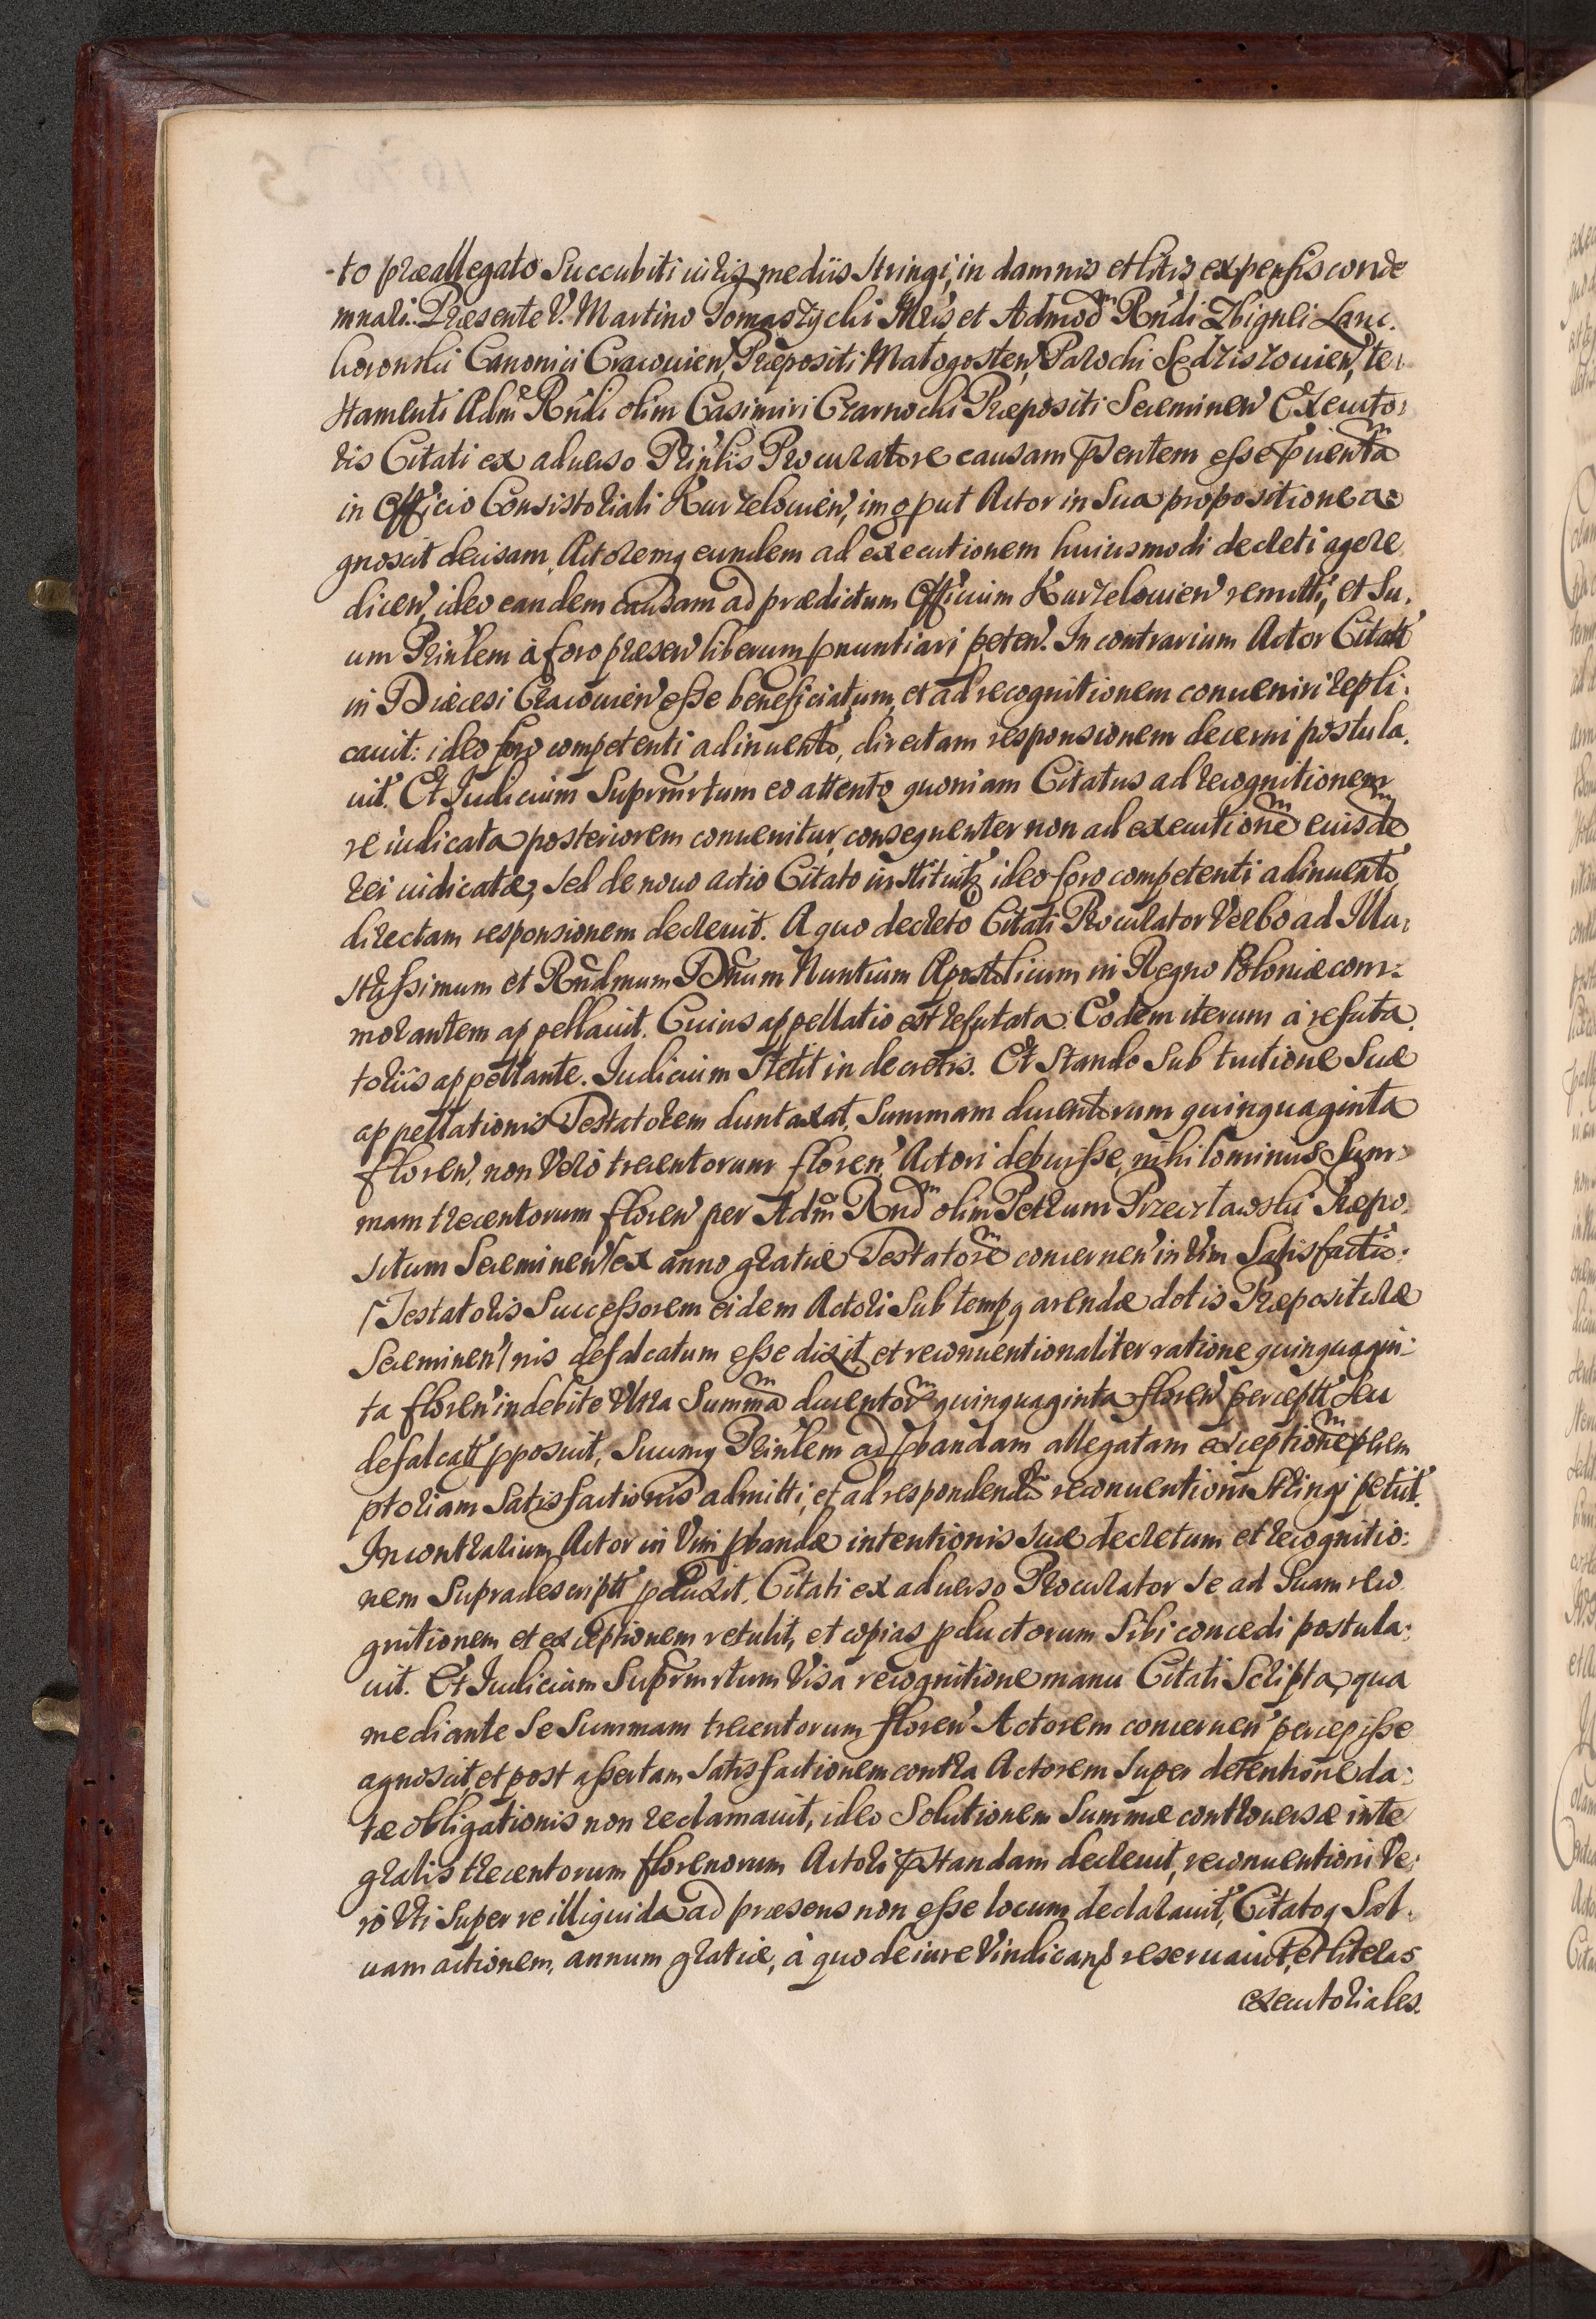 -to præallegato Succubiti iuris mediis stringi, in damnis et litis expensis conde
mnari. Præsente V. Martino Tomaszychi Illris et Admod Rndi Zbignei Lanc.
koronski Canonici Cracouien, Præpositi Małogosten, Parochi Sędziszouien, te,
stamenti Adm Rndi olim Casimiri Czarnocki Præpositi Seceminen Executo,
ris Citati ex aduerso Prinlis Procuratore causam psentem esse puenta
in Officio Consistoriali Kurzelouien, imo put Actor in sua propositione a
gnoscit decisam, Actoremq eundem ad executionem huiusmodi decreti agere
dicen, ideo eandem causam ad prædictum Officium Kurzelouien remitti, et Su,
um Prinlem à foro præsen liberum pnuntiari peten. In contrarium Actor Citatt
in Diæcesi Cracouien esse beneficiatum, et ad recognitionem conueniri repli,
cauit: ideo foro competenti adinuento, directam responsionem decerni postula,
uit. Et Iudicium Suprmrtum eo attento quoniam Citatus ad recognitionem
re iudicata posteriorem conuenitur, consequenter non ad executione eiusde
rei iudicatæ, sed de nouo actio Citato instituitz ideo foro competenti adinuento
directam responsionem decreuit. A quo decreto Citati Procurator Verbo ad Illu,
strissimum et Rndmum Dnum Nuntium Apostolicum in Regno Poloniæ com:
morantem appellauit. Cuius appellatio est refutata. Eodem iterum à refuta,
toriis appellante. Iudicium Stetit in decretis. Et Stando Sub tuitione Suæ
appellationis Testatorem duntaxat, Summam ducentorum quinquaginta
floren, non Verò trecentorum floren Actori debuisse, nihilominus Sum:
mam trecentorum floren per Adm Rnd olim Petrum Przerzławski Præpo,
situm Seceminen / ex anno gratiæ Testatore concernen in Vim Satisfactio:
/ Testatoris Successorem eidem Actori Sub tempq arendæ dotis Præposituræ
Seceminen / nis defalcatum esse dixit, et reconuentionaliter ratione quinquagin:
ta floren indebite Vltra Summa ducentor quinquaginta floren percepti seu
defalcati pposuit, Suumq Prinlem ad pbandam allegatam exceptione peremp
ptoriam Satisfactionis admitti, et ad respondendu reconuentioni Stringi petiit.
In contrarium Actor in Vim pbandæ intentionis Suæ decretum et recognitio:
nem Supradescriptt pduxit. Citati ex aduerso Procurator Se ad Suam reco
gnitionem et exceptionem retulit, et copias pductorum Sibi concedi postula,
uit. Et Iudicium Suprmrtum Visa recognitione manu Citati Scripta, qua
mediante Se Summam trecentorum floren Actorem concernen percepisse
agnoscit, et post assertam Satisfactionem contra Actorem Super detentione da:
tæ obligationis non reclamauit, ideo Solutionem Summæ controuersæ inte
gralis trecentorum florenorum Actori pstandam decreuit, reconuentioni Ve,
rò Vti Super re illiquida ad præsens non esse locum declarauit, Citatoq Sal,
uam actionem, annum gratiæ, à quo de iure Vindican reseruauit, et literas
executoriales.